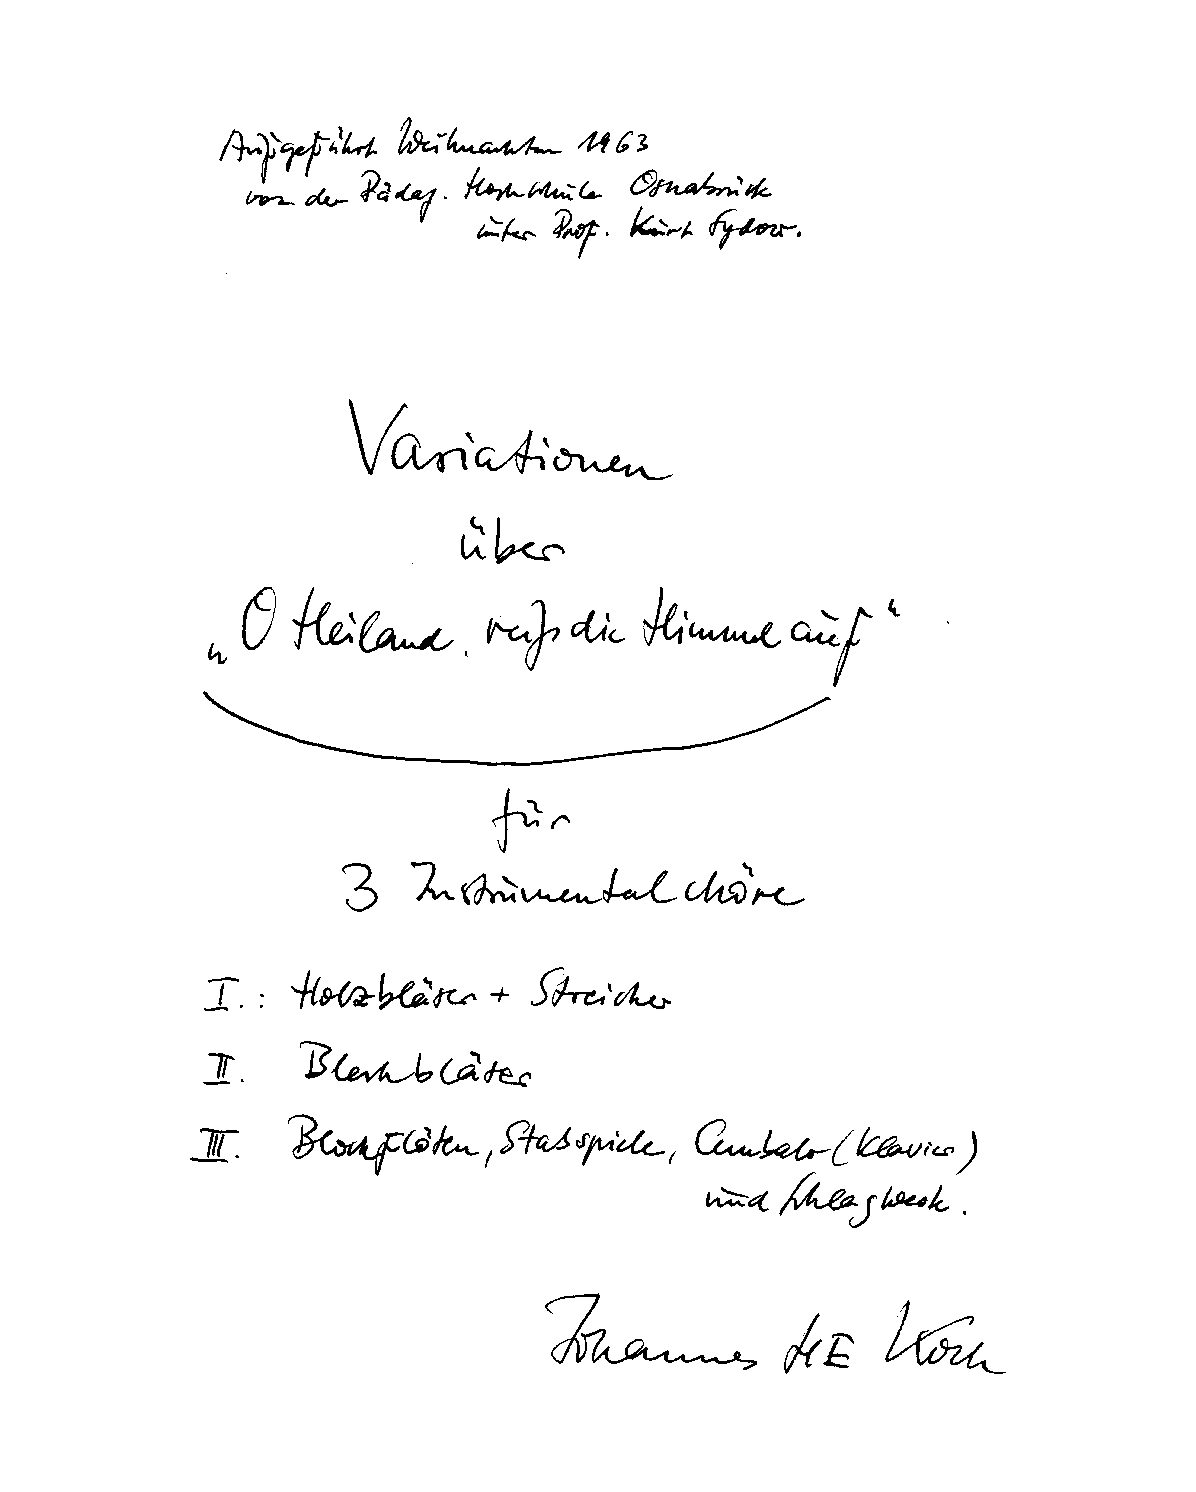 Aufgeführt Weihnachten 1963
von der Pädag. Hochschule Osnabrück
unter Prof. Kurt Sydow.
Variationen
über
„O Heiland, reiß die Himmel auf“
für
3 Instrumentalchöre
I.: Holzbläser + Streicher
II. Blechbläser
III. Blockflöten, Stabspiele, Cembalo (Klavier)
und Schlagwerk.
Johannes HE Koch